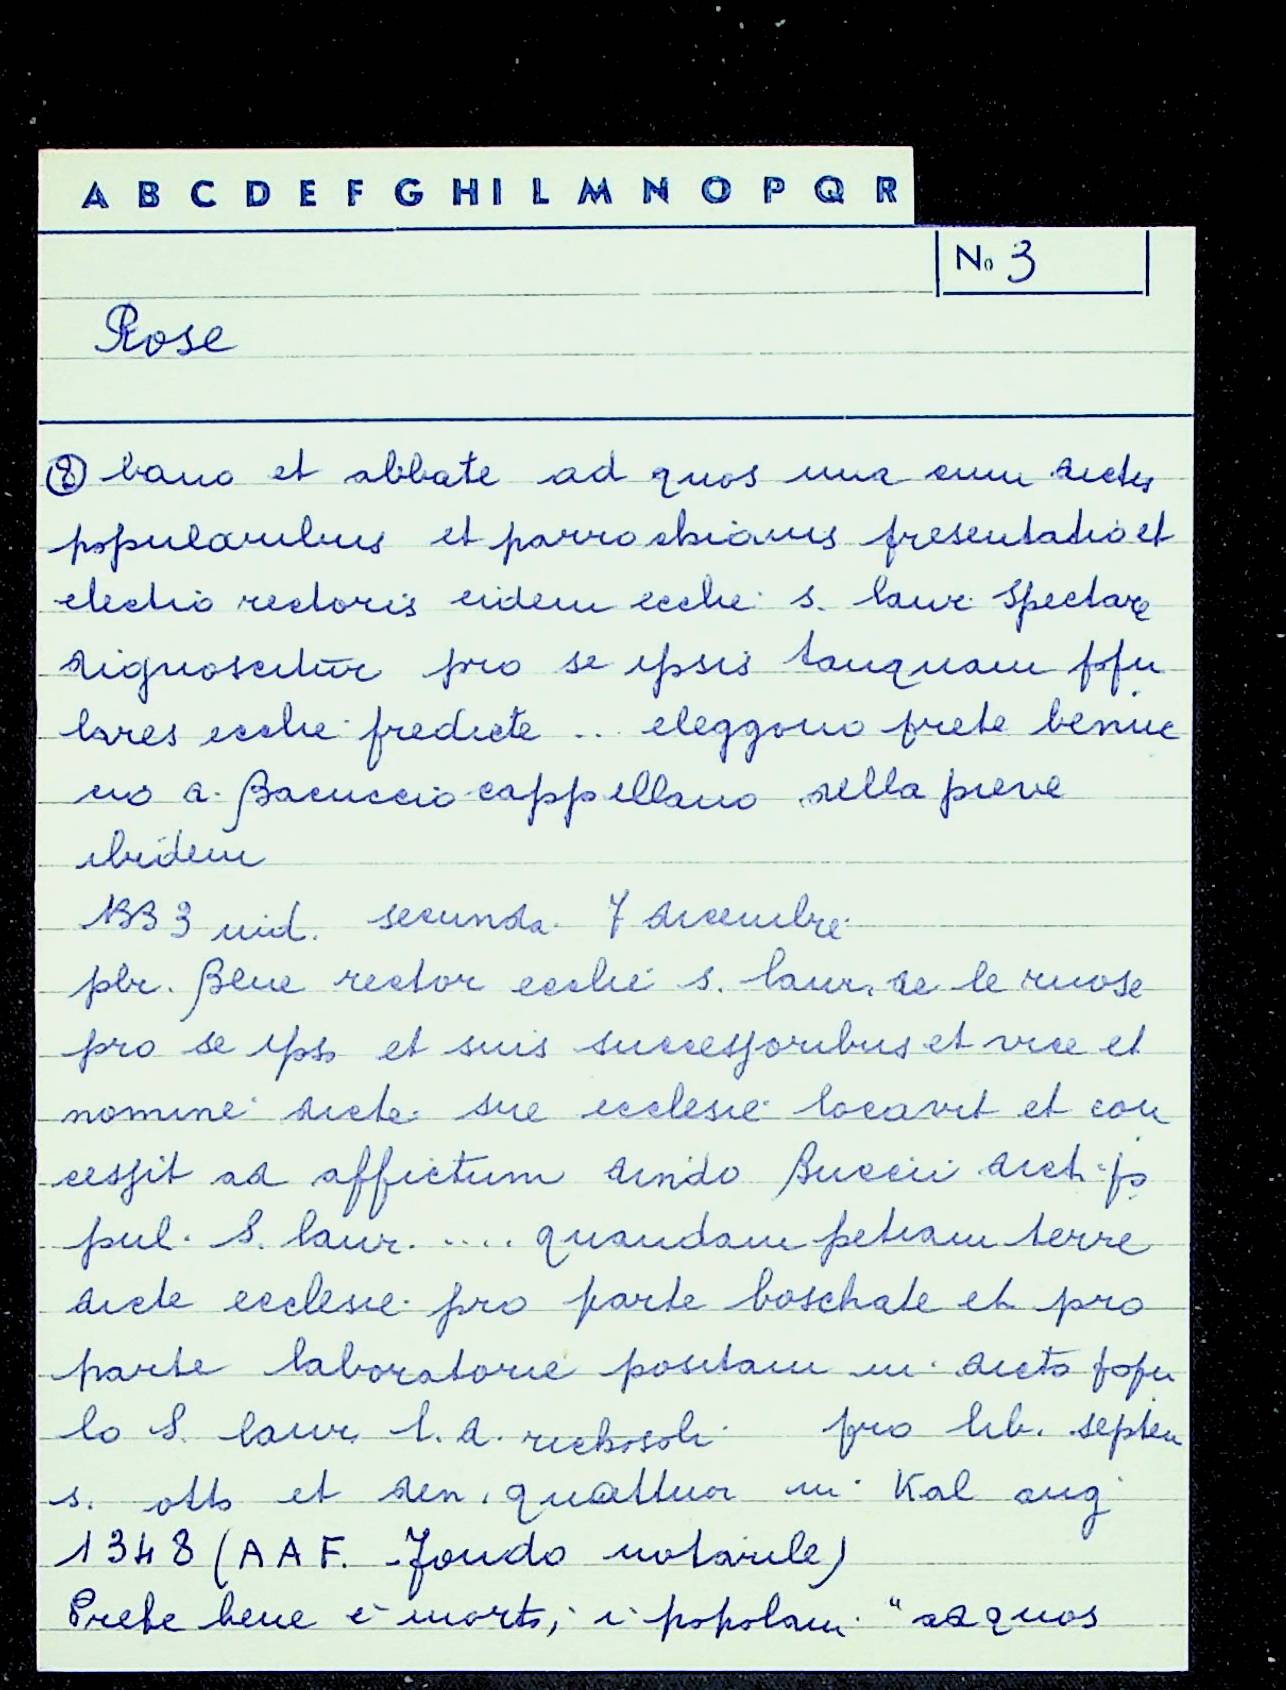 A B C D E F G H I L M N O P Q R
No 3
Rose
② bano et abbate ad quos una cum dictis
popularibus et parrochianis presentatio et
electio rectoris eidem eccle. s. laur. spectare
dignoscitur pro se ipsis tanquam popu
lares eccle. predicte .. eleggono prete benuc
cio d. Bacuccio cappellano della pieve
ibidem
1333 ind. secunda. 7 dicembre.
pbr. Bene rector eccle. s. laur. de le ruose
pro se ipso et suis successoribus et vice et
nomine dicte sue ecclesie locavit et con
cessit ad affictum dindo Buccii dict. po
pul. S. laur. .... quandam petiam terre
dicte ecclesie pro parte boschate et pro
parte laboratorie positam in dicto popu
lo S. laur. l. d. pro lib. septem
s. otto et den. quattuor in Kal aug
1348 (AAF. Fondo notarile)
Prete bene è morto, i popolani "ad quos